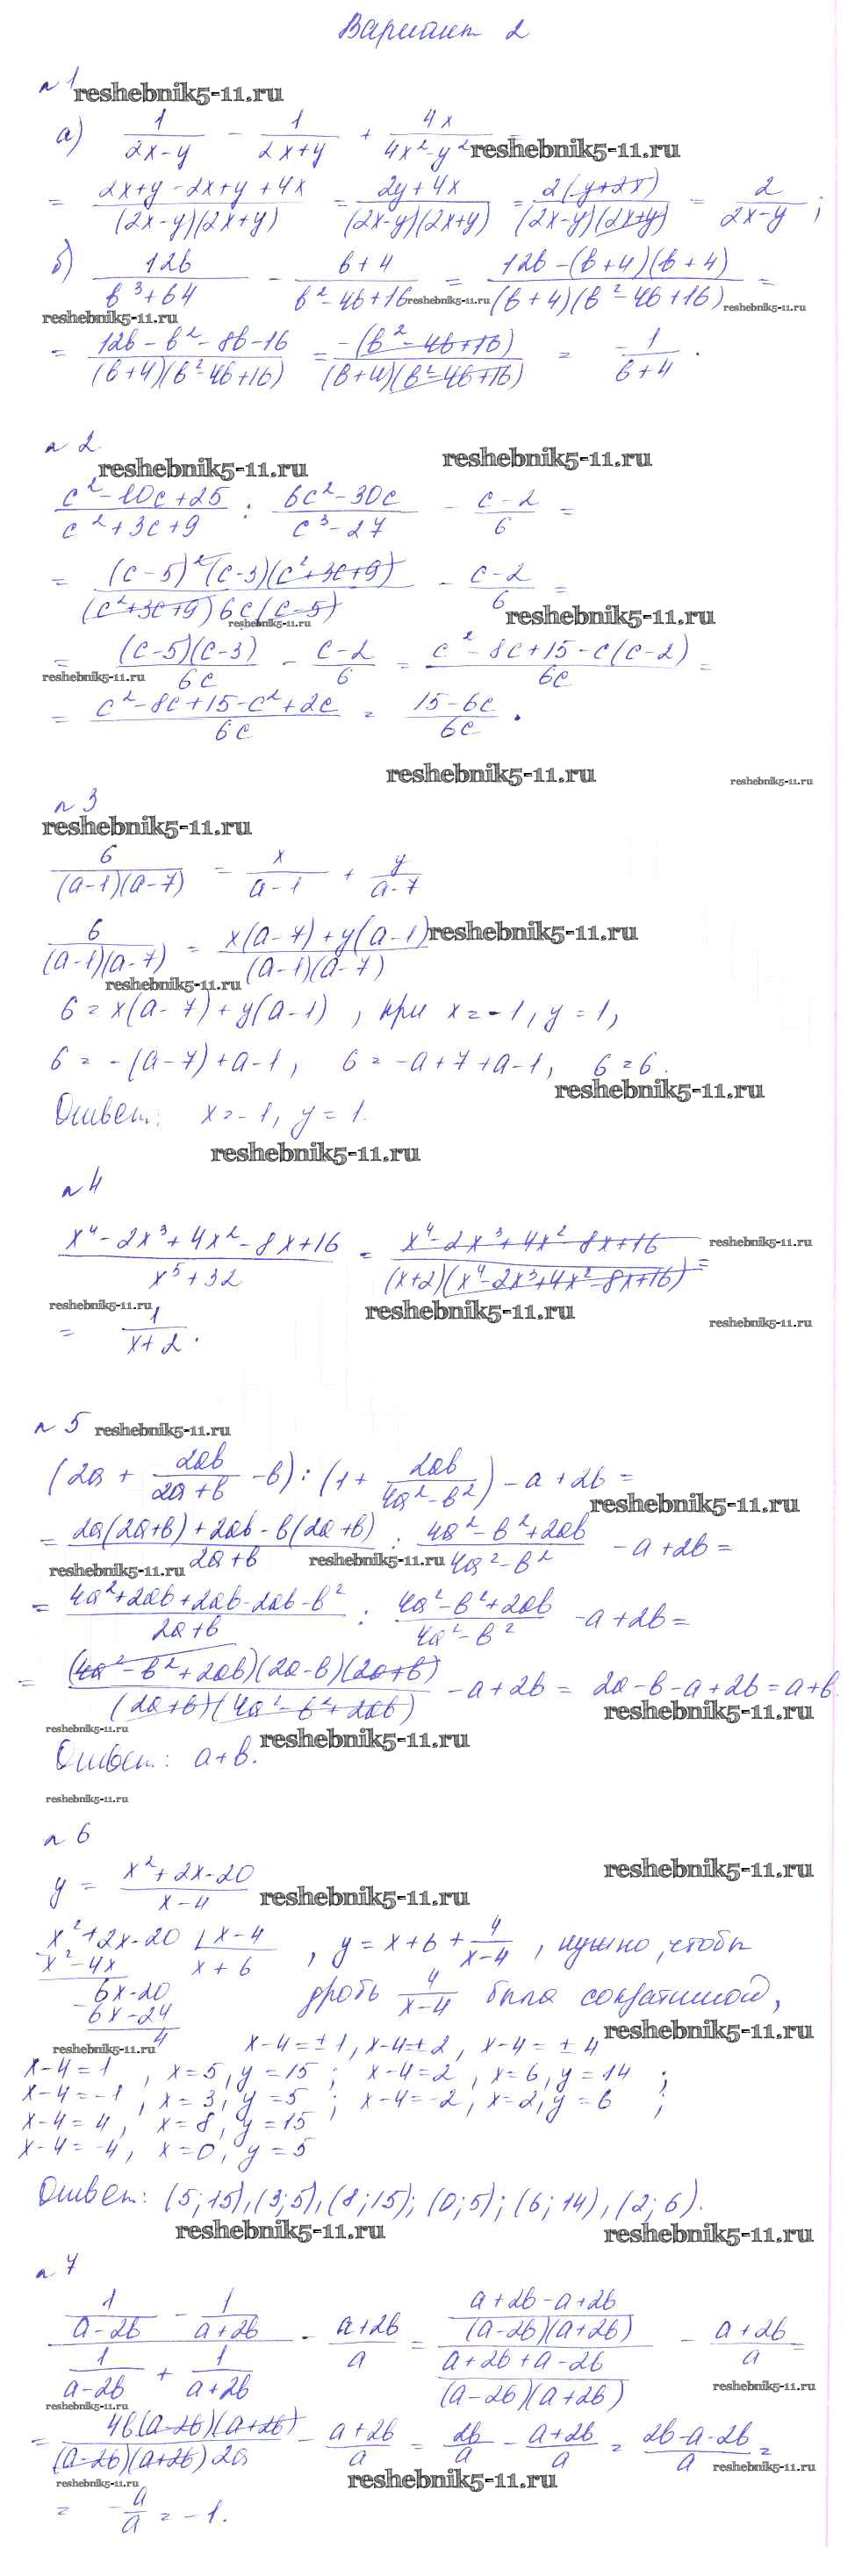 Вариант 2
n 1 reshebnik5-11.ru
а) 1/(2x-y) - 1/(2x+y) + 4x/(4x²-y²) = reshebnik5-11.ru
= (2x+y-2x+y+4x)/((2x-y)(2x+y)) = (2y+4x)/((2x-y)(2x+y)) = 2(y+2x)/((2x-y)(2x+y)) = 2/(2x-y) ;
б) 12b/(b³+64) - (b+4)/(b²-4b+16) = (12b-(b+4)(b+4))/((b+4)(b²-4b+16)) =
reshebnik5-11.ru reshebnik5-11.ru reshebnik5-11.ru
= (12b-b²-8b-16)/((b+4)(b²-4b+16)) = -(b²-4b+16)/((b+4)(b²-4b+16)) = -1/(b+4) .
n 2
reshebnik5-11.ru reshebnik5-11.ru
(c²-10c+25)/(c²+3c+9) : (6c²-30c)/(c³-27) - (c-2)/6 =
= (c-5)²(c-3)(c²+3c+9)/((c²+3c+9)6c(c-5)) - (c-2)/6 =
reshebnik5-11.ru reshebnik5-11.ru
= (c-5)(c-3)/6c - (c-2)/6 = (c²-8c+15-c(c-2))/6c =
reshebnik5-11.ru
= (c²-8c+15-c²+2c)/6c = (15-6c)/6c .
reshebnik5-11.ru reshebnik5-11.ru
n 3
reshebnik5-11.ru
6/((a-1)(a-7)) = x/(a-1) + y/(a-7)
6/((a-1)(a-7)) = (x(a-7)+y(a-1))/((a-1)(a-7)) reshebnik5-11.ru
reshebnik5-11.ru
6 = x(a-7)+y(a-1) , при x=-1, y=1,
6 = -(a-7)+a-1, 6 = -a+7+a-1, 6=6.
reshebnik5-11.ru
Ответ: x=-1, y=1.
reshebnik5-11.ru
n 4
(x⁴-2x³+4x²-8x+16)/(x⁵+32) = (x⁴-2x³+4x²-8x+16)/((x+2)(x⁴-2x³+4x²-8x+16)) = reshebnik5-11.ru
reshebnik5-11.ru reshebnik5-11.ru reshebnik5-11.ru
= 1/(x+2) .
n 5 reshebnik5-11.ru
(2a + 2ab/(2a+b) - b) : (1 + 2ab/(4a²-b²)) - a + 2b =
reshebnik5-11.ru
= (2a(2a+b)+2ab-b(2a+b))/(2a+b) : (4a²-b²+2ab)/(4a²-b²) - a + 2b =
reshebnik5-11.ru reshebnik5-11.ru
= (4a²+2ab+2ab-2ab-b²)/(2a+b) : (4a²-b²+2ab)/(4a²-b²) - a + 2b =
= (4a²-b²+2ab)(2a-b)(2a+b)/((2a+b)(4a²-b²+2ab)) - a + 2b = 2a-b-a+2b = a+b.
reshebnik5-11.ru reshebnik5-11.ru reshebnik5-11.ru
Ответ: a+b.
reshebnik5-11.ru
n 6
reshebnik5-11.ru
y = (x²+2x-20)/(x-4) reshebnik5-11.ru
x²+2x-20 | x-4
x²-4x x+6 , y = x+6+4/(x-4) , нужно, чтобы
6x-20 дробь 4/(x-4) была сократимой,
6x-24
4 reshebnik5-11.ru
reshebnik5-11.ru x-4=±1, x-4=±2, x-4=±4
x-4=1 , x=5, y=15 ; x-4=2 , x=6, y=14 ;
x-4=-1 , x=3, y=5 ; x-4=-2, x=2, y=6 ;
x-4=4, x=8, y=15
x-4=-4, x=0, y=5
Ответ: (5;15), (3;5), (8;15); (0;5); (6;14), (2;6).
reshebnik5-11.ru reshebnik5-11.ru
n 7
(1/(a-2b) - 1/(a+2b))/(1/(a-2b) + 1/(a+2b)) - (a+2b)/a = ((a+2b-a+2b)/((a-2b)(a+2b)))/((a+2b+a-2b)/((a-2b)(a+2b))) - (a+2b)/a =
reshebnik5-11.ru reshebnik5-11.ru
= 4b(a-2b)(a+2b)/((a-2b)(a+2b)2a) - (a+2b)/a = 2b/a - (a+2b)/a = (2b-a-2b)/a =
reshebnik5-11.ru reshebnik5-11.ru reshebnik5-11.ru
= -a/a = -1.